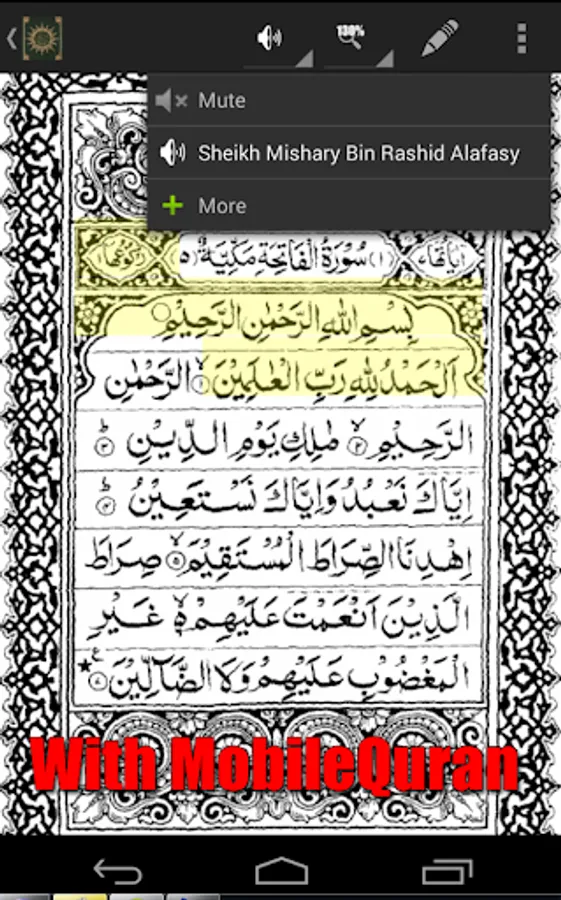 130%
Mute
Sheikh Mishary Bin Rashid Alafasy
More
اٰيَاتُهَا (١) سُوْرَةُ الْفَاتِحَةِ مَكِّيَّةٌ ٥ رُكُوْعُهَا ١
بِسْمِ اللّٰهِ الرَّحْمٰنِ الرَّحِيْمِ
اَلْحَمْدُ لِلّٰهِ رَبِّ الْعٰلَمِيْنَ ۙ ١ الرَّحْمٰنِ
الرَّحِيْمِ ۙ ٢ مٰلِكِ يَوْمِ الدِّيْنِ ؕ ٣
اِيَّاكَ نَعْبُدُ وَاِيَّاكَ نَسْتَعِيْنُ ؕ ٤
اِهْدِنَا الصِّرَاطَ الْمُسْتَقِيْمَ ۙ ٥ صِرَاطَ
الَّذِيْنَ اَنْعَمْتَ عَلَيْهِمْ ۙ٦ غَيْرِ
الْمَغْضُوْبِ عَلَيْهِمْ وَلَا الضَّآلِّيْنَ ٧ ع
With MobileQuran